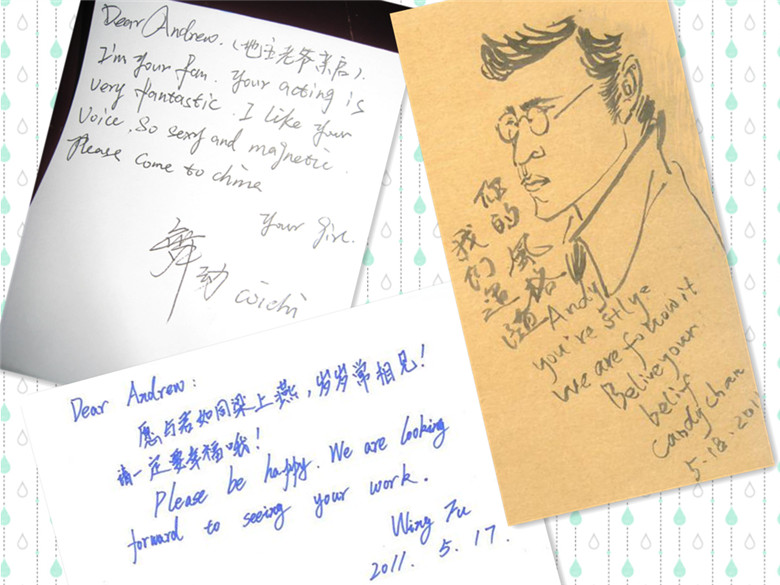 Dear Andrew.（地主老爷亲启）.
I'm your fan. Your acting is
very fantastic. I like your
voice. So sexy and magnetic.
Please come to china
Your girl.
舞动 coichi
你的風格
我们
Andy
you're stlye
we are follow it
Belive your
belif
Candy Chan
5.18.2011
Dear Andrew:
愿与君如同梁上燕，岁岁常相见！
请一定要幸福哦！
Please be happy. We are looking
forward to seeing your work.
Wing Fu
2011. 5. 17.